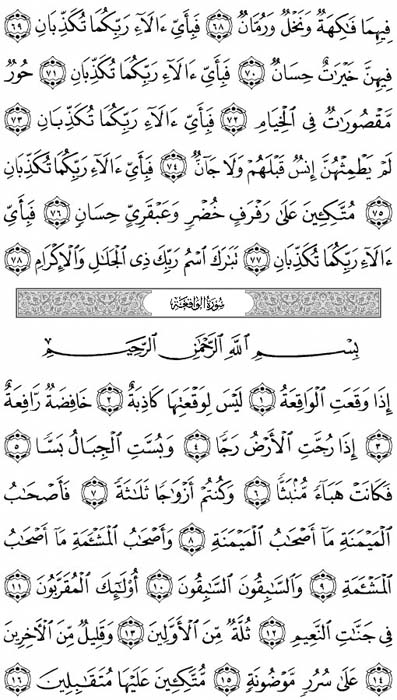 فِيهِمَا فَٰكِهَةٌ وَنَخْلٌ وَرُمَّانٌ ٦٨ فَبِأَيِّ ءَالَآءِ رَبِّكُمَا تُكَذِّبَانِ ٦٩
فِيهِنَّ خَيْرَٰتٌ حِسَانٌ ٧٠ فَبِأَيِّ ءَالَآءِ رَبِّكُمَا تُكَذِّبَانِ ٧١ حُورٌ
مَّقْصُورَٰتٌ فِي ٱلْخِيَامِ ٧٢ فَبِأَيِّ ءَالَآءِ رَبِّكُمَا تُكَذِّبَانِ ٧٣
لَمْ يَطْمِثْهُنَّ إِنسٌ قَبْلَهُمْ وَلَا جَآنٌّ ٧٤ فَبِأَيِّ ءَالَآءِ رَبِّكُمَا تُكَذِّبَانِ
٧٥ مُتَّكِـِٔينَ عَلَىٰ رَفْرَفٍ خُضْرٍ وَعَبْقَرِيٍّ حِسَانٍ ٧٦ فَبِأَيِّ
ءَالَآءِ رَبِّكُمَا تُكَذِّبَانِ ٧٧ تَبَٰرَكَ ٱسْمُ رَبِّكَ ذِي ٱلْجَلَٰلِ وَٱلْإِكْرَامِ ٧٨
سُورَةُ الوَاقِعَةِ
بِسْمِ ٱللَّهِ ٱلرَّحْمَٰنِ ٱلرَّحِيمِ
إِذَا وَقَعَتِ ٱلْوَاقِعَةُ ١ لَيْسَ لِوَقْعَتِهَا كَاذِبَةٌ ٢ خَافِضَةٌ رَّافِعَةٌ
٣ إِذَا رُجَّتِ ٱلْأَرْضُ رَجًّا ٤ وَبُسَّتِ ٱلْجِبَالُ بَسًّا ٥
فَكَانَتْ هَبَآءً مُّنۢبَثًّا ٦ وَكُنتُمْ أَزْوَٰجًا ثَلَٰثَةً ٧ فَأَصْحَٰبُ
ٱلْمَيْمَنَةِ مَآ أَصْحَٰبُ ٱلْمَيْمَنَةِ ٨ وَأَصْحَٰبُ ٱلْمَشْـَٔمَةِ مَآ أَصْحَٰبُ
ٱلْمَشْـَٔمَةِ ٩ وَٱلسَّٰبِقُونَ ٱلسَّٰبِقُونَ ١٠ أُو۟لَٰٓئِكَ ٱلْمُقَرَّبُونَ ١١
فِي جَنَّٰتِ ٱلنَّعِيمِ ١٢ ثُلَّةٌ مِّنَ ٱلْأَوَّلِينَ ١٣ وَقَلِيلٌ مِّنَ ٱلْءَاخِرِينَ
١٤ عَلَىٰ سُرُرٍ مَّوْضُونَةٍ ١٥ مُّتَّكِـِٔينَ عَلَيْهَا مُتَقَٰبِلِينَ ١٦